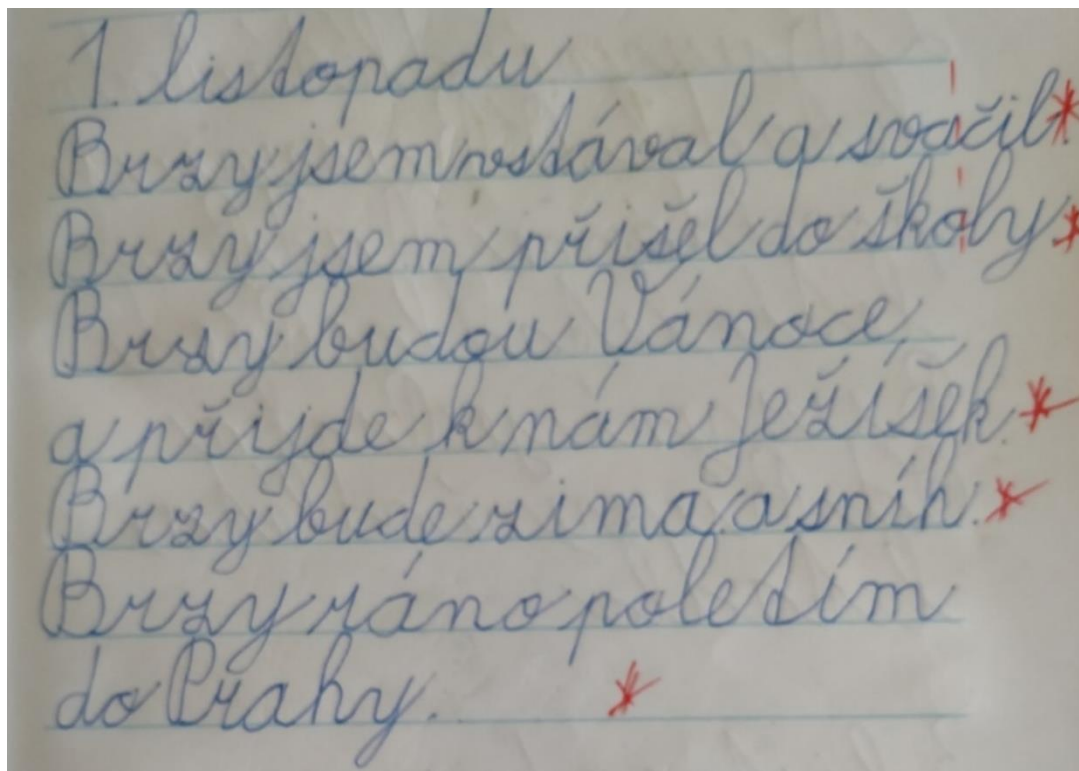 1. listopadu
Brzy jsem vstával a svačil.
Brzy jsem přišel do školy.
Brzy budou Vánoce
a přijde k nám Ježíšek.
Brzy bude zima a sníh.
Brzy ráno poletím
do Prahy.